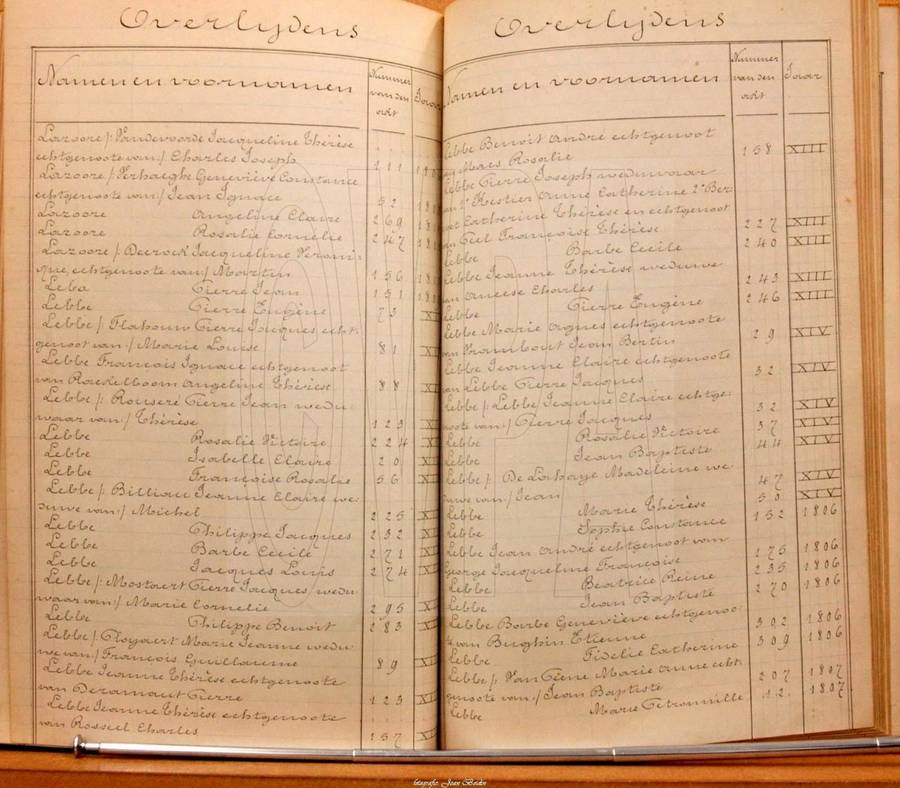 Overlijdens
Namen en voornamen
Nummer van den acht
Jaar
Lazoore /: Vandevoorde Jacqueline Thérèse
echtgenoote van:/ Charles Joseph 111
Lazoore /: Verhaeghe Geneviève Constance
echtgenoote van:/ Jean Ignace 52
Lazoore Angeline Claire 269
Lazoore Rosalie Cornelie 247
Lazoore /: Decrock Jacqueline Veroni-
que, echtgenoote van:/ Martin 156
Leba Pierre Jean 151
Lebbe Pierre Eugène 73
Lebbe /: Flahouw Pierre Jacques echt-
genoot van:/ Marie Louise 81
Lebbe François Ignace echtgenoot
van Raekelboom Angeline Thérèse 88
Lebbe /: Rouseré Pierre Jean wedu-
waar van:/ Thérèse 123
Lebbe Rosalie Victoire 224
Lebbe Isabelle Claire 20
Lebbe Françoise Rosalie 56
Lebbe /: Billiau Jeanne Claire we-
duwe van:/ Michel 225
Lebbe Philippe Jacques 232
Lebbe Barbe Cécile 271
Lebbe Jacques Louis 274
Lebbe /: Mostaert Pierre Jacques wedu-
waar van:/ Marie Cornelie 295
Lebbe Philippe Benoit 283
Lebbe /: Cloyaert Marie Jeanne wedu-
we van:/ François Guillaume 89
Lebbe Jeanne Thérèse echtgenoote
van Deramaut Pierre 123
Lebbe Jeanne Thérèse echtgenoote
van Rosseel Charles 157
Overlijdens
Namen en voornamen
Nummer van den acht
Jaar
Lebbe Benoit André echtgenoot
van Maes Rosalie 158 XIII
Lebbe Pierre Joseph weduwaar
van Kestier Anne Catherine 2°
Catherine Thérèse en echtgenoot
van Geel Françoise Thérèse 227 XIII
Lebbe Barbe Cécile 240 XIII
Lebbe Jeanne Thérèse weduwe
van Ameese Charles 243 XIII
Lebbe Pierre Eugène 246 XIII
Lebbe Marie Agnes echtgenoote
van Frambout Jean Bertin 29 XIV
Lebbe Jeanne Claire echtgenoote
van Lebbe Pierre Jacques 32 XIV
Lebbe /: Lebbe Jeanne Claire echtge-
noote van:/ Pierre Jacques 32 XIV
Lebbe Rosalie Victoire 37 XIV
Lebbe Jean Baptiste 44 XIV
Lebbe /: De Lahaye Madeleine we-
duwe van:/ Jean 47 XIV
Lebbe Marie Thérèse 50 XIV
Lebbe Sophie Constance 152 1806
Lebbe Jean André echtgenoot van
George Jacqueline Françoise 175 1806
Lebbe Beatrice Reine 235 1806
Lebbe Jean Baptiste 270 1806
Lebbe Barbe Geneviève echtgenoo-
te van Bughin Etienne 302 1806
Lebbe Fidelie Catherine 309 1806
Lebbe /: Van Tiene Marie Anne echt-
genoote van:/ Jean Baptiste 207 1807
Lebbe Marie Petronnille 12 1807
fotografie: Jean